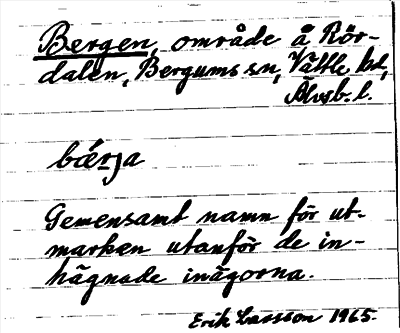 Bergen, område å Rör-
dalen, Bergums sn, Vättle hd,
Älvsb. l.
bǽrja
Gemensamt namn för ut-
marken utanför de in-
hägnade inägorna.
Erik Larsson 1965.